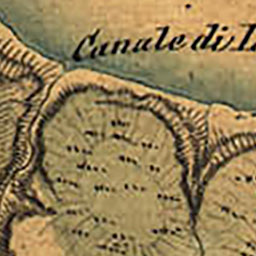 Canale di